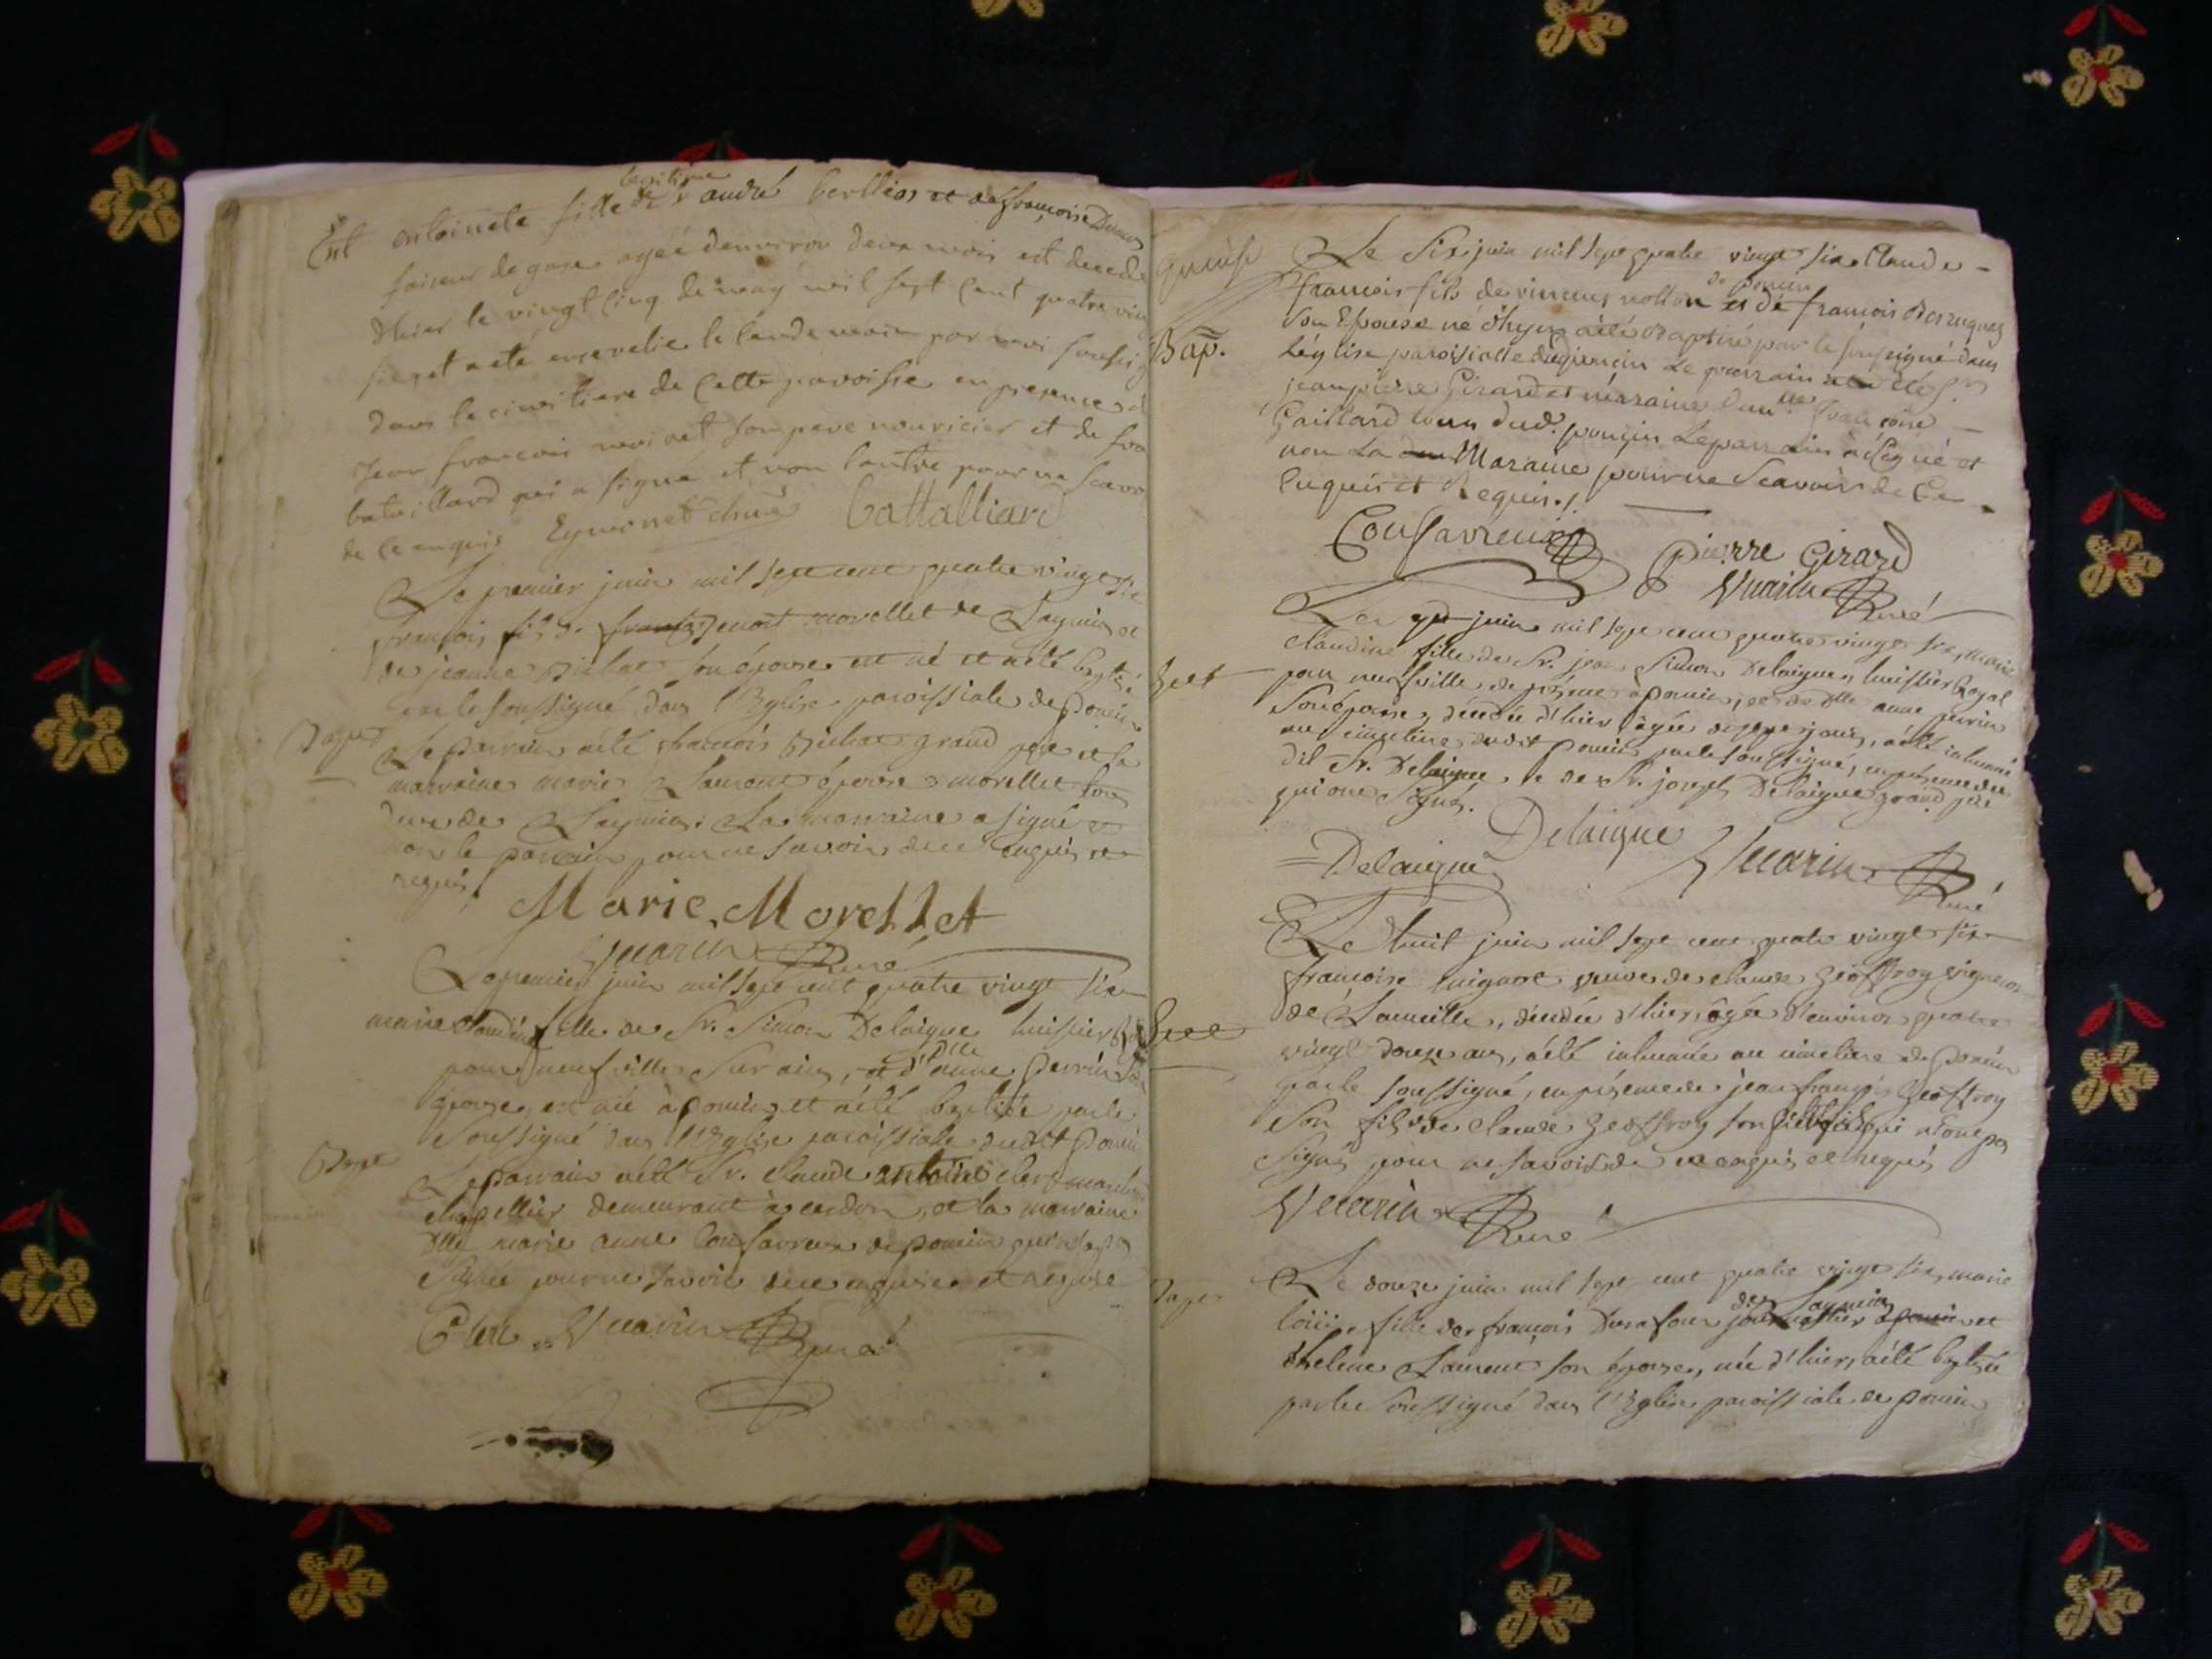 legitime
Ent antoinete fille de Sr andré berllios et de françoise
faiseur de gase agée denviron deux mois est decede
d'hier le vingt cinq de may mil sept cent quatre vin
six et a eté ensevelie le lendemain par moi soussig
dans le cimitiere de cette paroisse en presence d
Jean françois son pere nouricier et de fra
bataillard qui a signé et non lautre pour ne scavo
de ce enquis Eymonet battalliard
Le premier juin mil sept cent quatre vingt six
françois fils de benoit morellet de Leymiat et
de jeanne son épouse est né et a été baptisé
par le soussigné dans l'Eglise paroissiale de poncin
Bapt
Le parrain a été françois grand pere et la
marraine marie Laurent épouse morellet tous
deux de La marraine a signé et
non le parrain pour ne savoir de ce enquis et
requis /
Marie Morellet
Le premier juin mil sept cent quatre vingt six
marie claudine fille de Sr. Simon Delaigue huissier
pour neufville sur ain, et d'lle anne perrin son
épouse, est née à poncin et a été baptisée par le
soussigné dans l'Eglise paroissiale dudit poncin
Bapt
Le parrain a été Sr. claude antoine clerc marchand
chapellier demeurant à cerdon, et la marraine
Dlle marie anne de poncin qui n'a pas
signée pour ne savoir de ce enquise et requise
Clerc
Le Six juin mil sept quatre vingt six Claude -
de poncin
françois fils de vincent et de
son Epouse né d'hyer a été Baptisé par le soussigné dans
Bap.
Léglise paroisialle de poncin Le parrain a été Sr.
jean pierre Girard et maraine dame lle françoise -
Gaillard tous dud. poncin Le parrain a signé et
non La Maraine pour ne Scavoir de Ce
Enquis et Requis /.
Pierre Girard
juin mil sept cent quatre vingt six, marie
claudine fille de Sr. jean Simon Delaigue huissier Royal
pour neufville de présent à poncin, et de dlle anne perrin
son épouse, décédée d'hier âgée de sept jours, a été inhumée
au cimetiere dudit poncin par le soussigné, en présence du
dit Sr. Delaigue et de Sr. joseph Delaigue grand pere
qui ont signés.
Delaigue
Delaigue
Le huit juin mil sept cent quatre vingt six
françoise veuve de claude geoffroy vigneron
de décédée d'hier, âgée d'environ quatre
vingt douze ans, a été inhumée au cimetiere de poncin
par le soussigné, en présence de jean françois geoffroy
son fils de claude geoffroy son qui n'ont pas
signés pour ne savoir de ce enquis et requis
Le douze juin mil sept cent quatre vingt six, marie
Bapt
fille de françois Durafour et
helene Laurent son épouse, née d'hier, a été baptisée
par le soussigné dans l'Eglise paroissiale de poncin